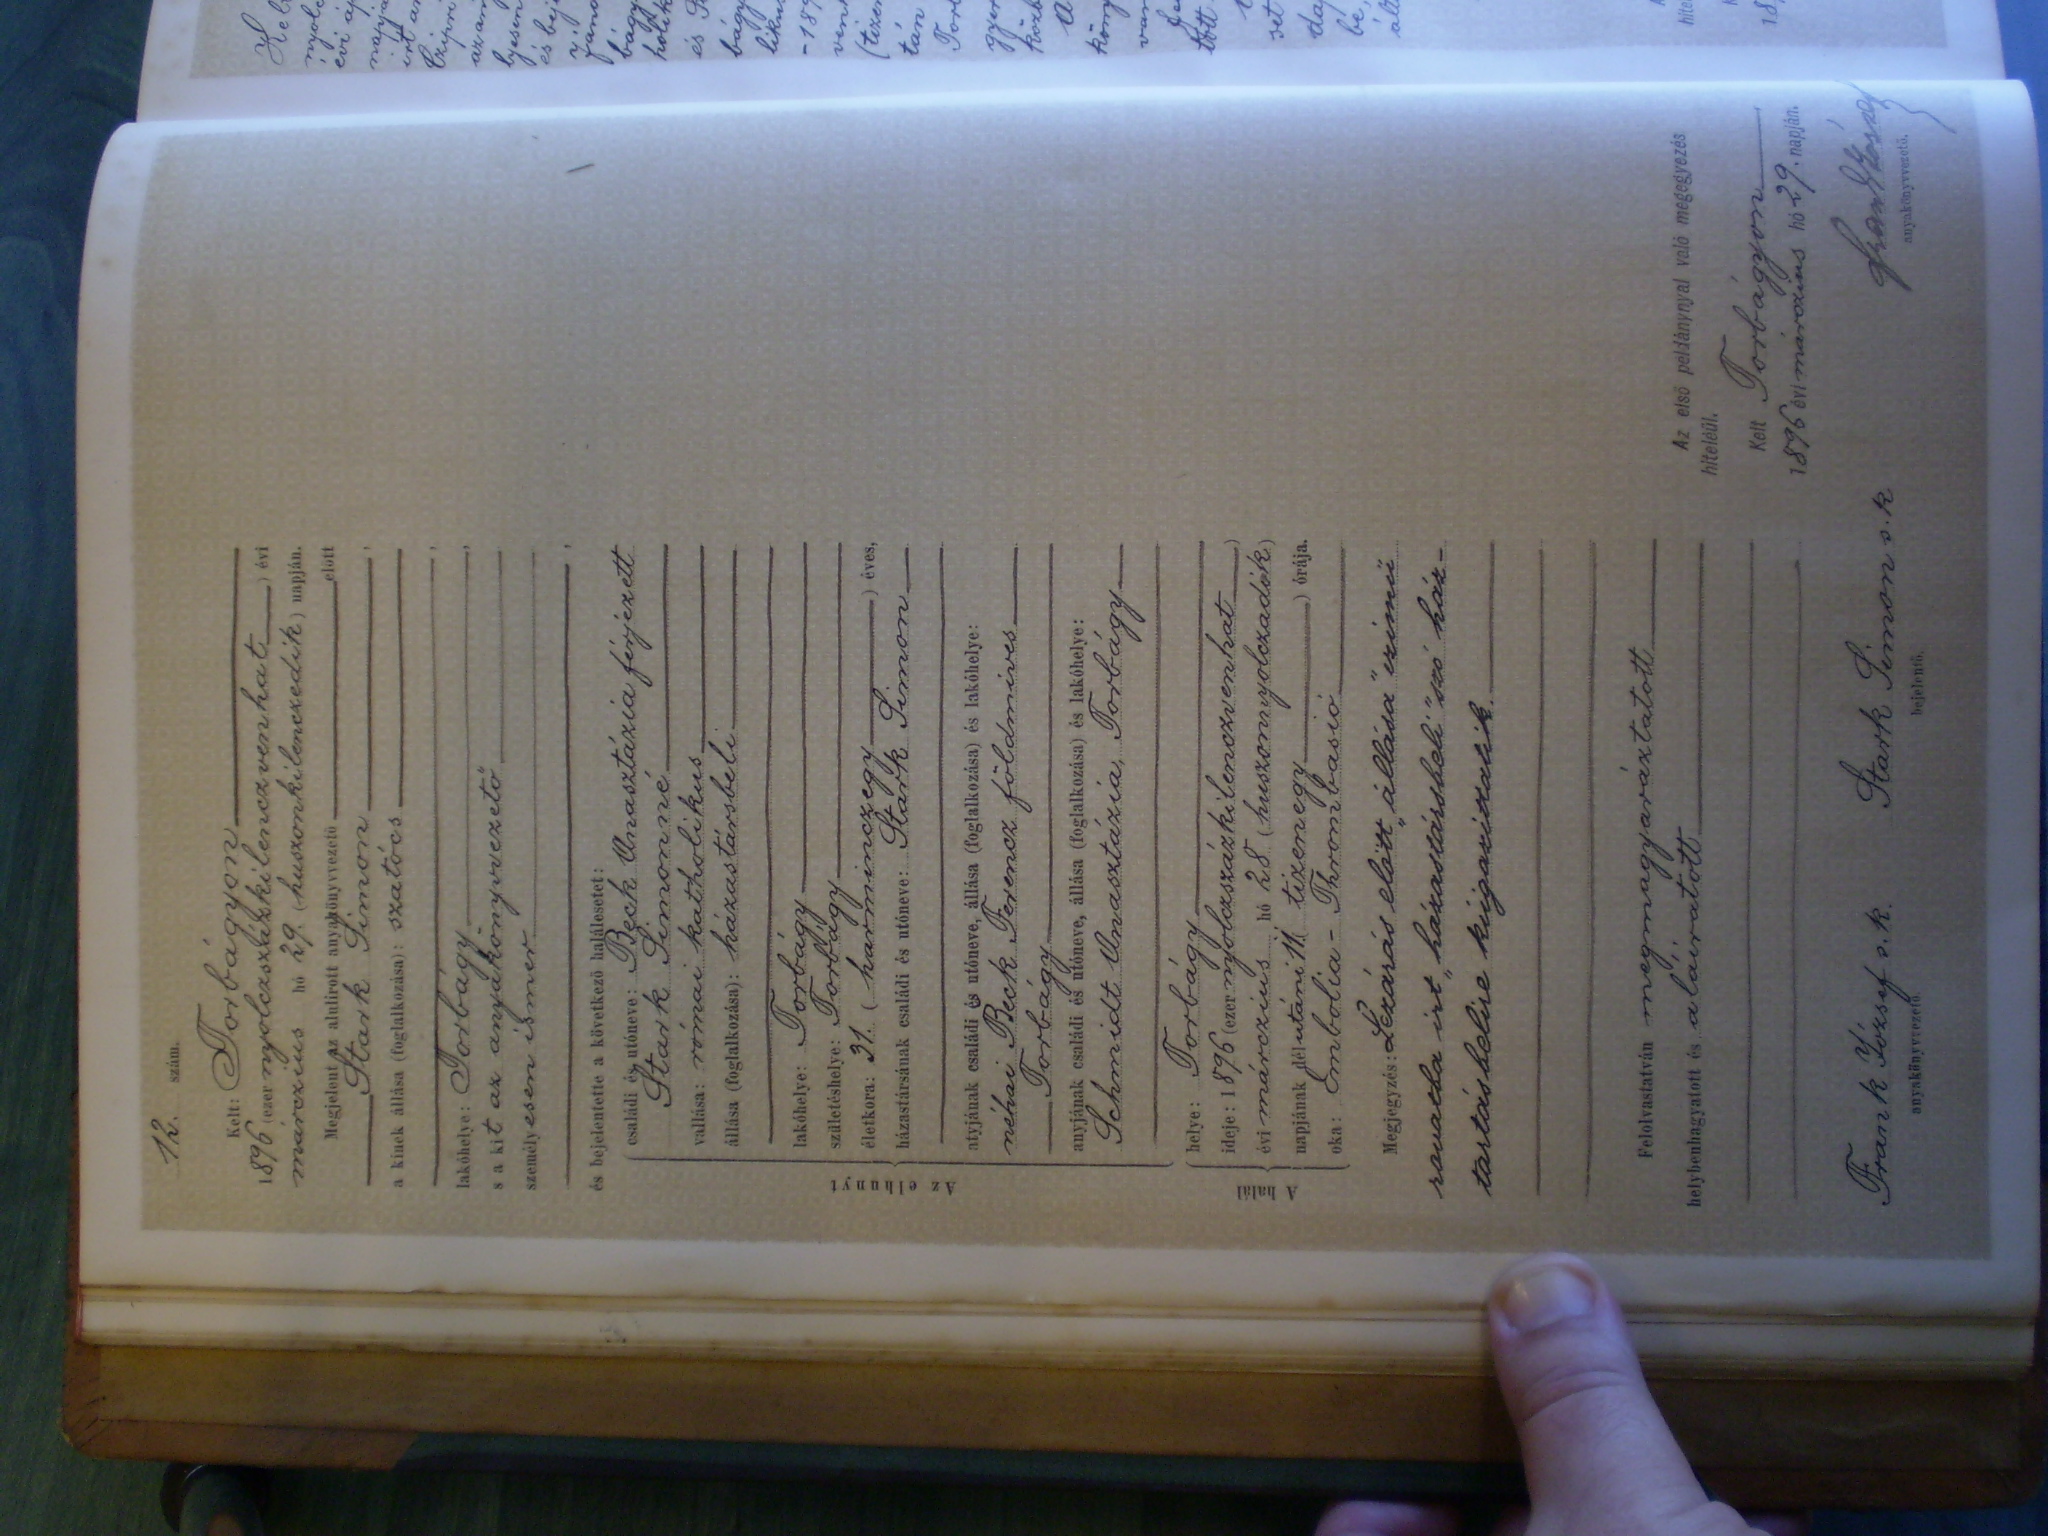 12. szám.
Kelt: Torbágyon
1896 (ezer nyolczszázkilenczvenhat) évi
márczius hó 29. (huszonkilenczedik) napján.
Megjelent az alulirott anyakönyvvezető előtt
Stark Simon,
a kinek állása (foglalkozása): szatócs
lakóhelye: Torbágy,
s a kit az anyakönyvvezető
személyesen ismer,
és bejelentette a következő halálesetet:
Az elhunyt
családi és utóneve: Beck Anasztázia férjezett
Stark Simonné
vallása: római katholikus
állása (foglalkozása): házastársbeli
lakóhelye: Torbágy
születéshelye: Torbágy
életkora: 31. (harminczegy) éves,
házastársának családi és utóneve: Stark Simon
atyjának családi és utóneve, állása (foglalkozása) és lakóhelye:
néhai Beck Ferencz földmives
Torbágy
anyjának családi és utóneve, állása (foglalkozása) és lakóhelye:
Schmidt Anasztázia, Torbágy
A halál
helye: Torbágy
ideje: 1896 (ezer nyolczszázkilenczvenhat)
évi márczius hó 28 (huszonnyolczadik)
napjának délutáni 11 (tizenegy) órája.
oka: Embolia - Thrombasió
Megjegyzés: Lezárás előtt „állása" czimü
rovatba irt „házastársbeli" szó ház-
tartásbelire kiigazittatik.
Felolvastatván megmagyaráztatott
helybenhagyatott és aláiratott
Frank József s. k. Stark Simon s. k
anyakönyvvezető. bejelentő.
Az első példánynyal való megegyezés
hiteléül.
Kelt Torbágyon
1896 évi márczius hó 29. napján.
Frank József
anyakönyvvezető.